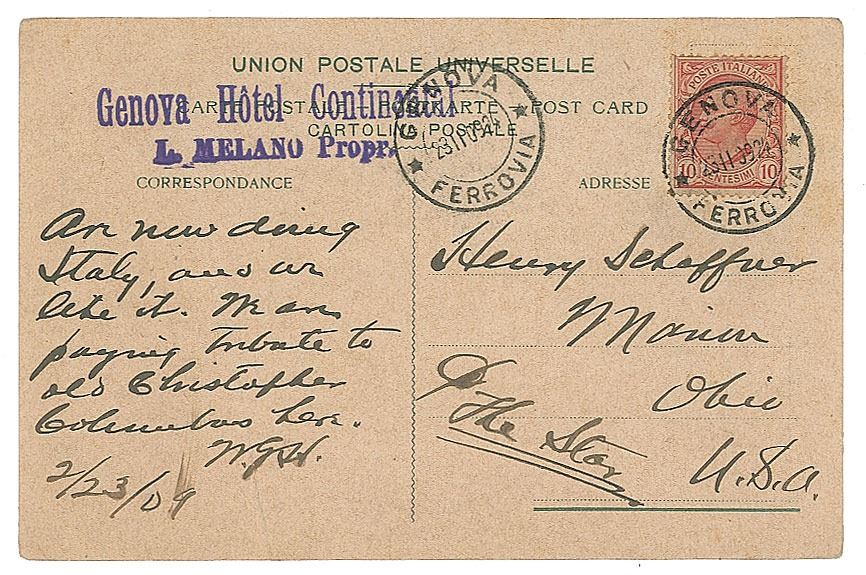 UNION POSTALE UNIVERSELLE
CARTE POSTALE – POSTKARTE – POST CARD
CARTOLINA POSTALE
Genova Hôtel Continental
L. MELANO Propr.
GENOVA
FERROVIA
POSTE ITALIANE
10 CENTESIMI 10
GENOVA
FERROVIA
CORRESPONDANCE
ADRESSE
Are now doing
Italy, and we
like it. We are
paying tribute to
old Christopher
Columbus here.
W.G.H.
2/23/09
Henry Schaffner
Marion
Ohio
The Star
U.S.A.